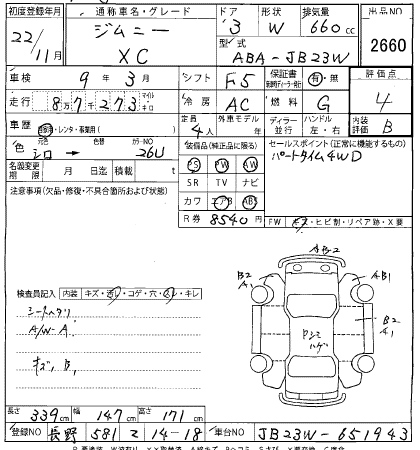 初度登録年月 通称車名・グレード ドア 形状 排気量 出品NO
22/11月 ジムニー XC 3 W 660cc 2660
型式 ABA-JB23W
車検 9年3月 シフト F5 保証書 有・無 評価点
走行 8万7千273 マイル キロ 冷房 AC 燃料 G 4
車歴 自家用・レンタ・事業用( ) 定員 4人 外車モデル 年 ディーラー・並行 ハンドル 左・右 内装評価 B
色 元色 シロ → 色替 カラーNO 26U 装備品(純正品に限る) セールスポイント(正常に機能するもの)
名義変更期限 月 日迄 積載 t PS PW AW パートタイム4WD
注意事項(欠品・修復・不具合箇所および状態) SR TV ナビ
カワ エアB ABS
R券 8540円 FW キズ・ヒビ割・リペア跡・X要
AB2
検査員記入 内装 キズ・汚レ・コゲ・穴・スレ・キレ B2 A1 AB1
シートヘタリ
A/W-A B2 A1
キズ、B1 ハゲ
長さ 339cm 幅 147cm 高さ 171cm
登録NO 長野 581 て 14-18 車台NO JB23W-651943